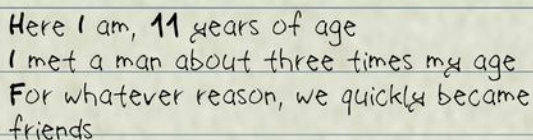 Here I am, 11 years of age
I met a man about three times my age
For whatever reason, we quickly became
friends